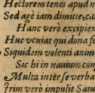 Hectorem tenes apud m
Sed age iam dimitte, c
Hanc verò excipien
Huc veniat qui dona f
Siquidem volenti anim
Sic hi in nauim con
Multa inter se verba
frim verò impulit Sa